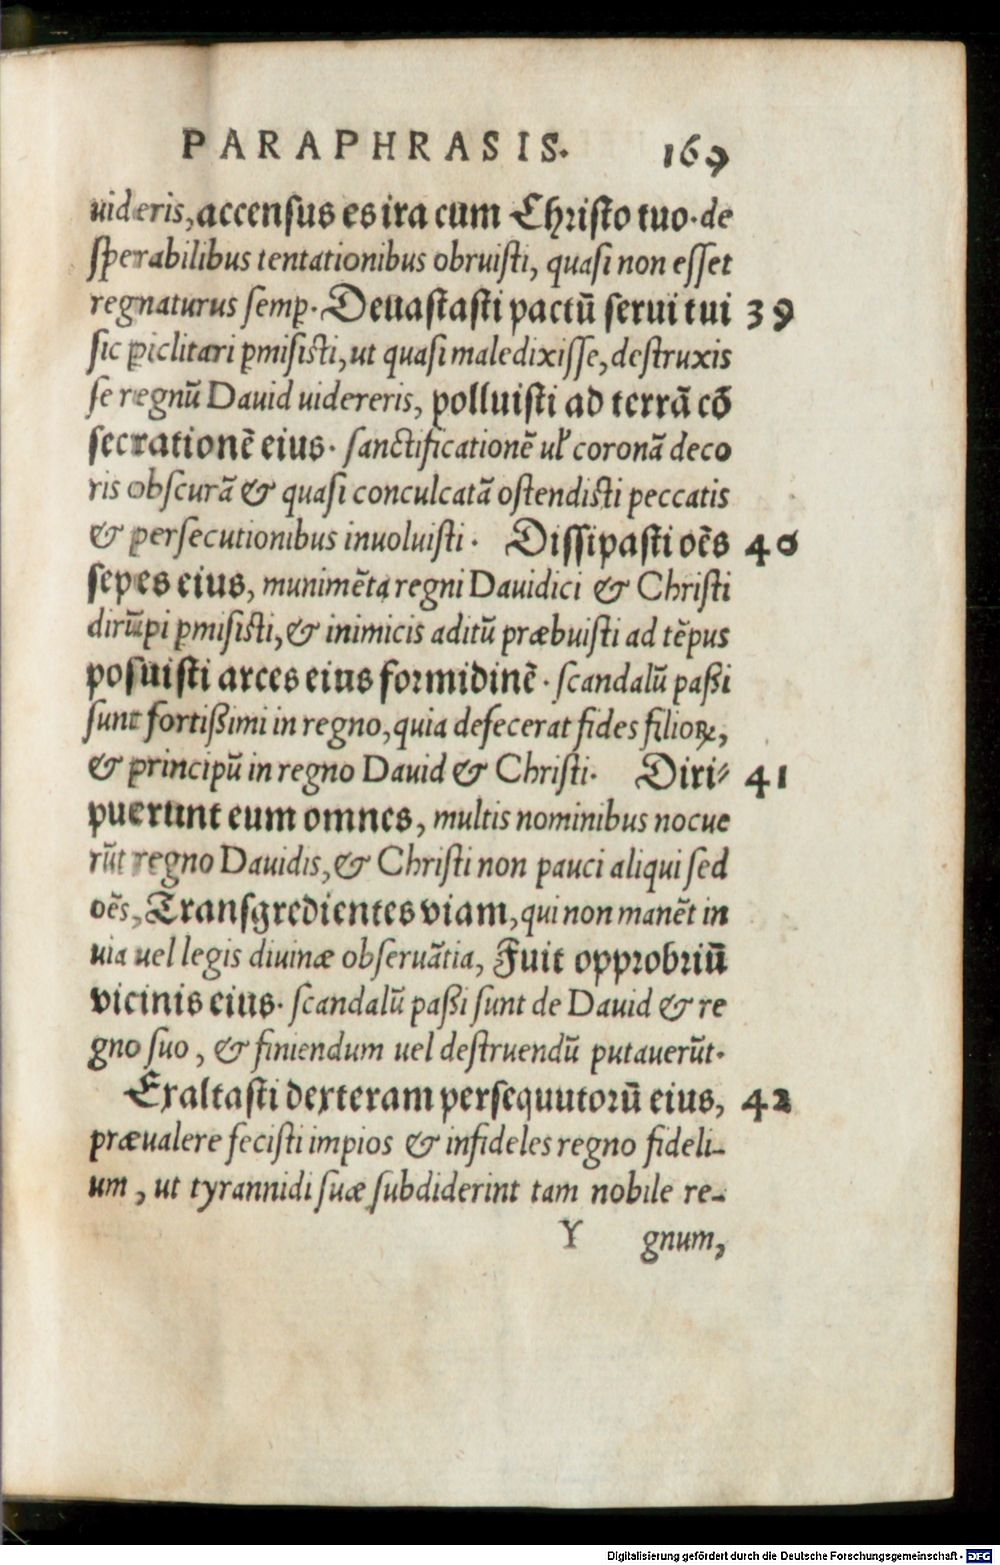 PARAPHRASIS. 169
uideris, accensus es ira cum Christo tuo. de
sperabilibus tentationibus obruisti, quasi non esset
regnaturus semp̱. Deuastasti pactū serui tui 39
sic p̱iclitari p̱misisti, ut quasi maledixisse, destruxis
se regnū Dauid uidereris, polluisti ad terrā cō
secrationē eius. sanctificationē ul̓ coronā deco
ris obscurā & quasi conculcatā ostendisti peccatis
& persecutionibus inuoluisti. Dissipasti oēs 40
sepes eius, munimēta regni Dauidici & Christi
dirūpi p̱misisti, & inimicis aditū præbuisti ad tēpus
posuisti arces eius formidinē. scandalū paßi
sunt fortißimi in regno, quia defecerat fides filioꝝ,
& principū in regno Dauid & Christi. Diri⸗ 41
puerunt eum omnes, multis nominibus nocue
rūt regno Dauidis, & Christi non pauci aliqui sed
oēs, Transgredientes viam, qui non manēt in
uia uel legis diuinæ obseruātia, Fuit opprobriū
vicinis eius. scandalū paßi sunt de Dauid & re
gno suo, & finiendum uel destruendū putauerūt.
Exaltasti dexteram persequutorū eius, 42
præualere fecisti impios & infideles regno fideli-
um, ut tyrannidi suæ subdiderint tam nobile re-
Y gnum,
Digitalisierung gefördert durch die Deutsche Forschungsgemeinschaft - DFG